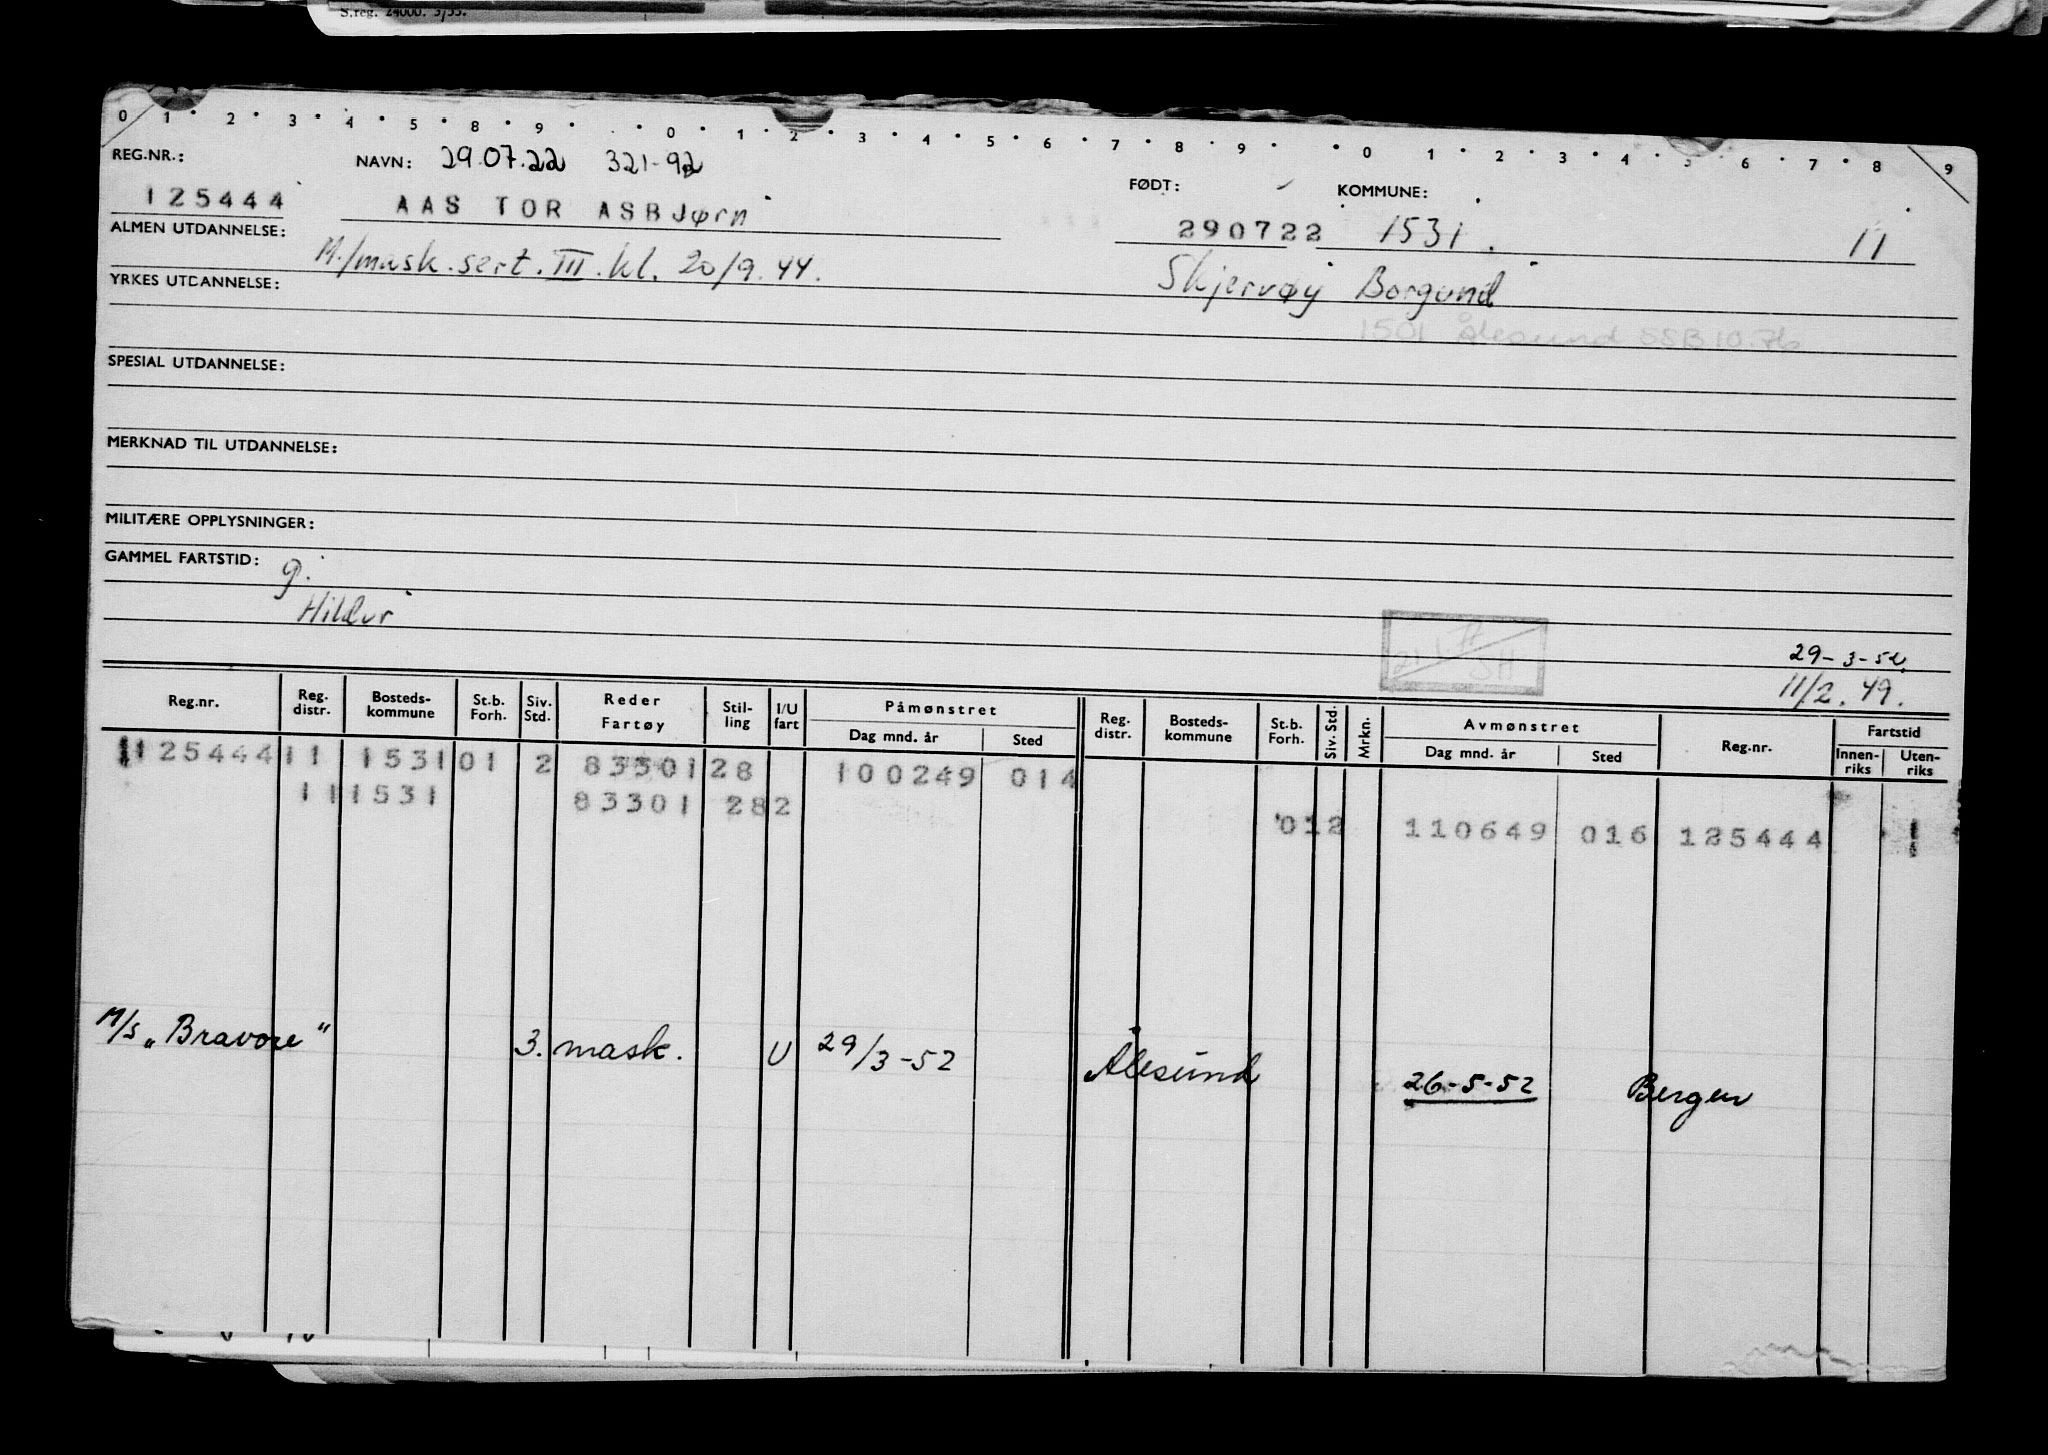 S.reg. 24000. 3/55.
0 1 2 3 4 5 8 9 0 1 2 3 4 5 6 7 8 9 0 1 2 3 4 5 6 7 8 9
REG.NR.: NAVN: 29.07.22 321-92 FØDT: KOMMUNE:
125444 AAS TOR ASBJørn 290722 1531. 11
ALMEN UTDANNELSE: M./mask.sert. III. kl. 20/9.44. Skjervøy Borgund
YRKES UTDANNELSE:
1501 Ålesund SSB 10.76
SPESIAL UTDANNELSE:
MERKNAD TIL UTDANNELSE:
MILITÆRE OPPLYSNINGER:
GAMMEL FARTSTID: g.
Hildur
29-3-52.
11/2.49.
Reg.nr. Reg. distr. Bosteds-kommune St.b. Forh. Siv. Std. Reder Fartøy Stil-ling I/U fart Påmønstret Dag mnd. år Sted Reg. distr. Bosteds-kommune St.b. Forh. Siv. Std. Mrkn. Avmønstret Dag mnd. år Sted Reg.nr. Fartstid Innen-riks Uten-riks
125444 11 1531 01 2 83301 28 100249 014
11 1531 83301 28 2
012 110649 016 125444
M/s „Bravore" 3. mask. U 29/3-52 Ålesund 26-5-52 Bergen